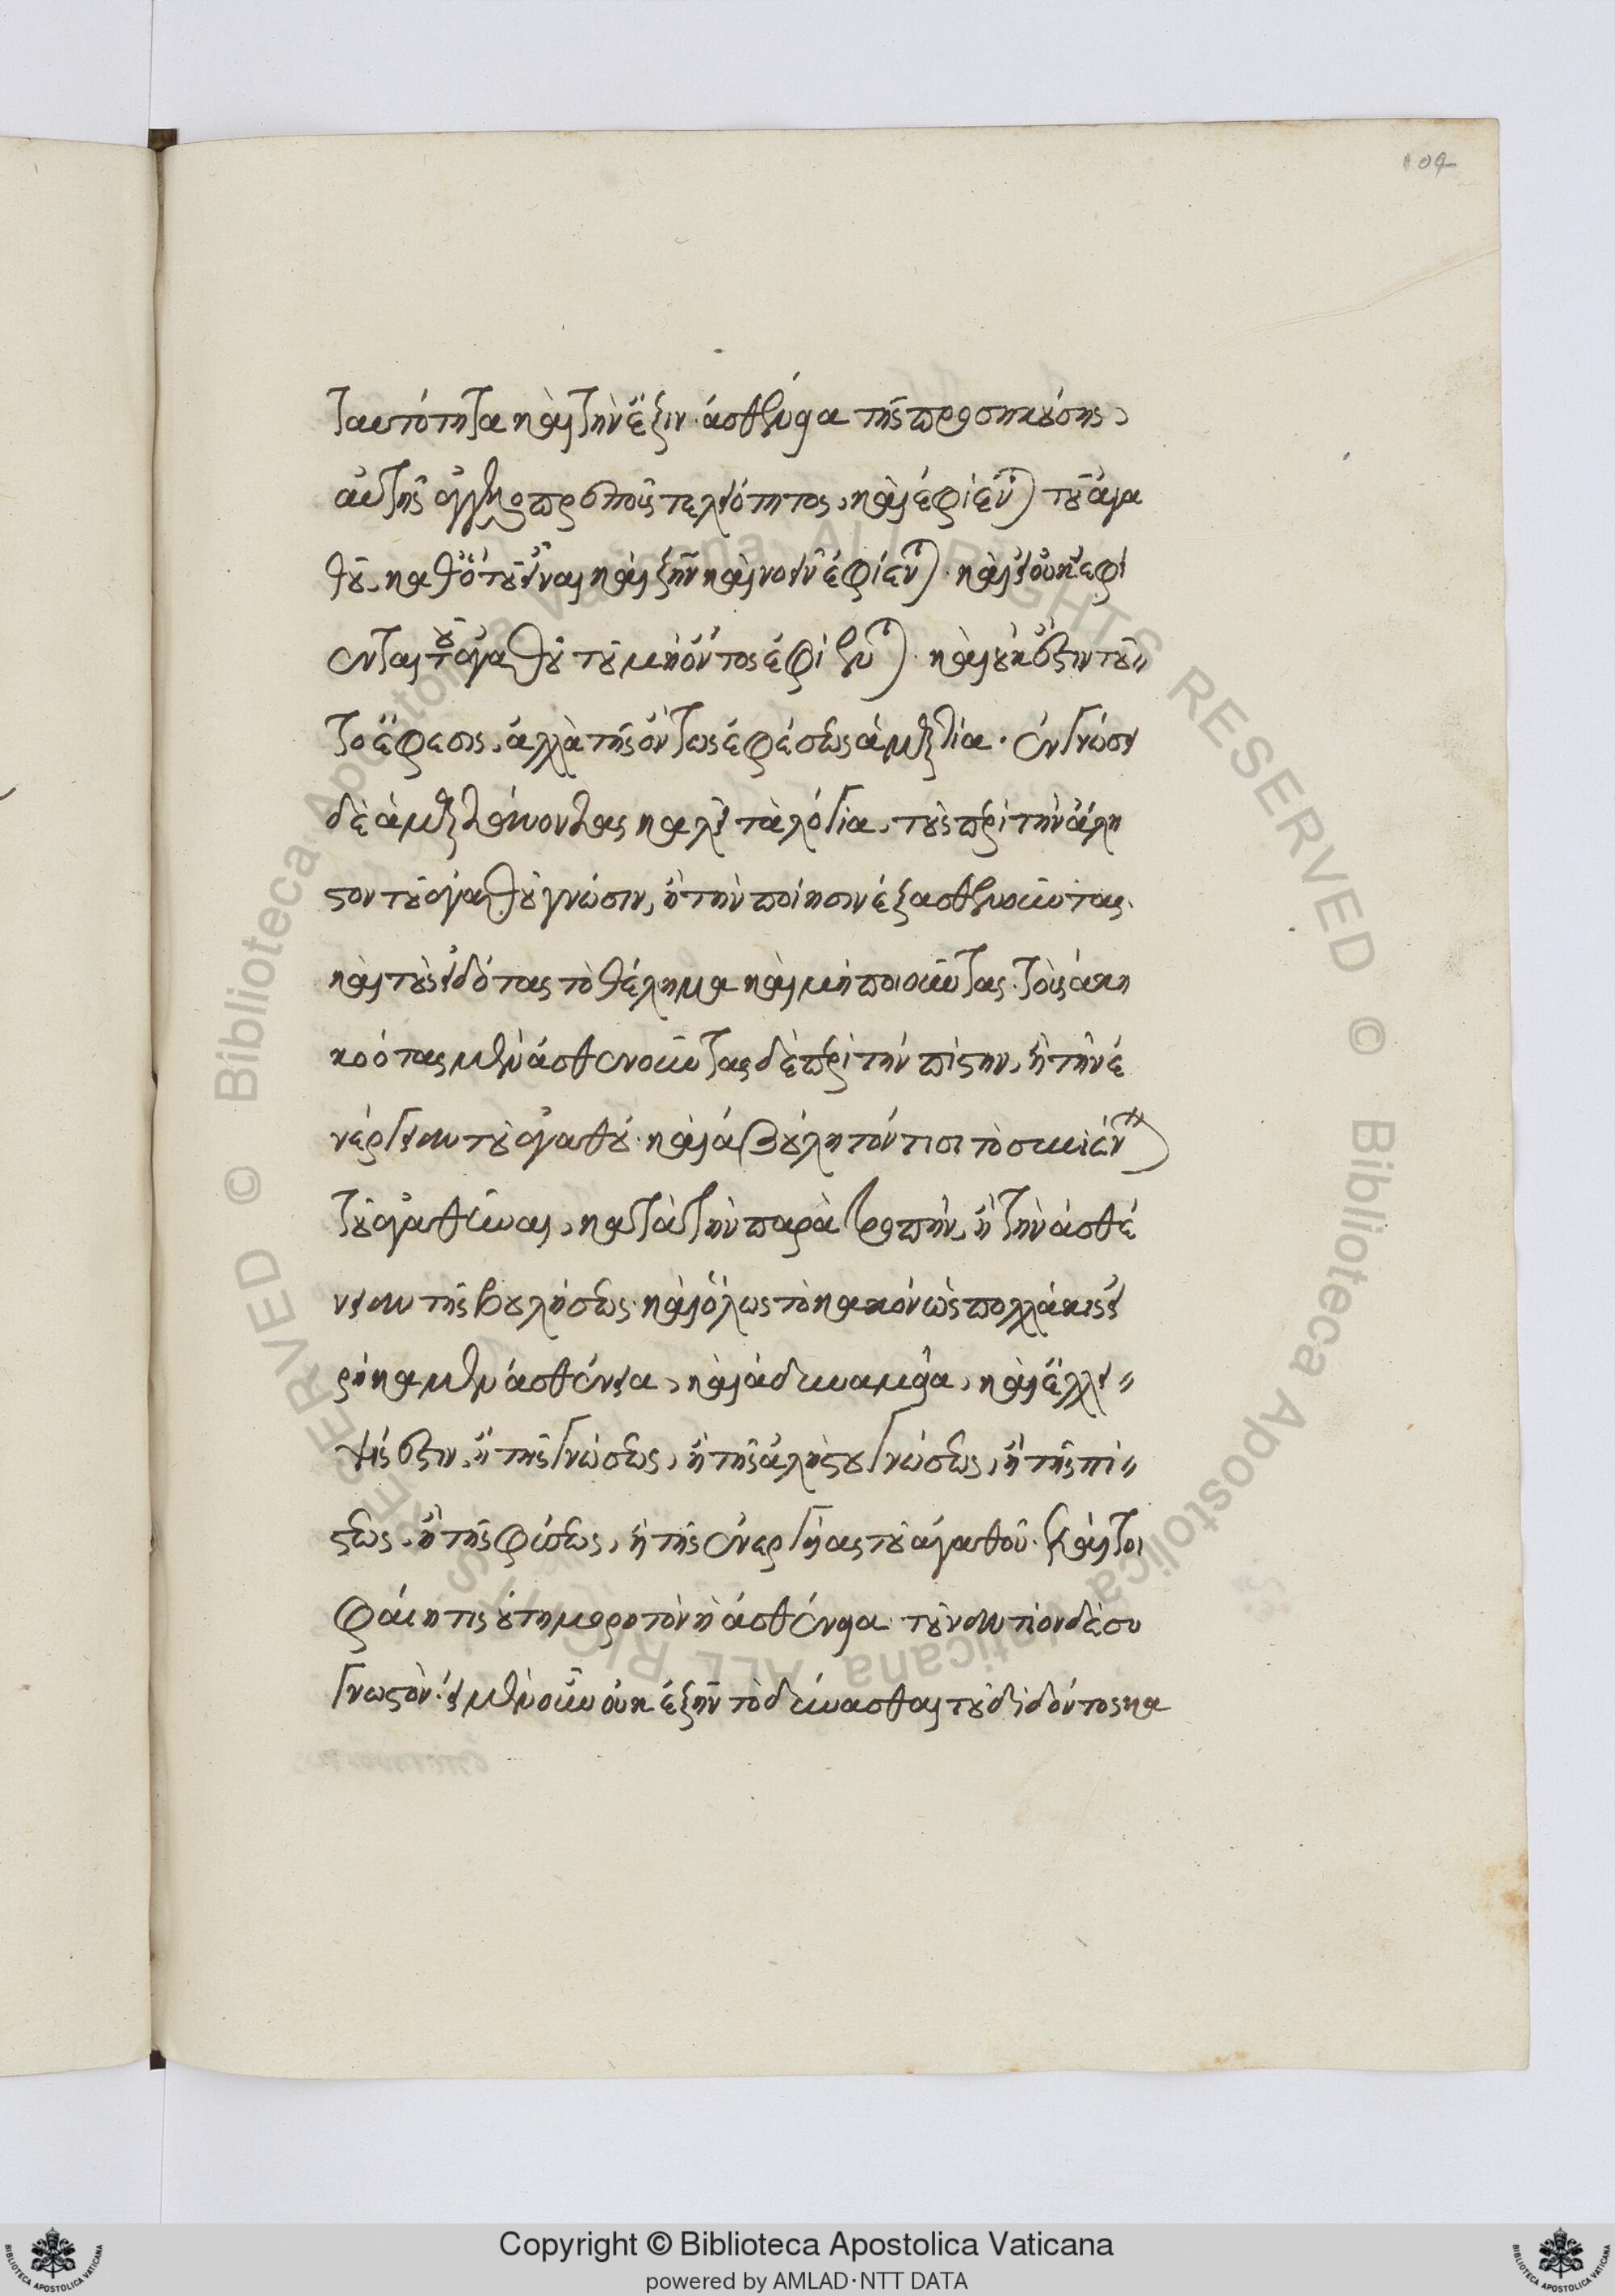 104
ταυτότητα καὶ τὴν ἕξιν· ἀσθένεια τῆς προσηκούσης,
αὐτῆς ἀγγελοπρεποῦς τελειότητος, καὶ ἐφίενται τοῦ ἀγα
θοῦ, καθὸ τοῦ εἶναι καὶ ζῆν καὶ νοεῖν ἐφίενται. καὶ εἰ οὐκ ἐφί
ενται τοῦ ἀγαθοῦ τοῦ μὴ ὄντος ἐφίενται. καὶ οὐκ ἔστιν τοῦ
το ἔφεσις, ἀλλὰ τῆς ὄντως ἐφέσεως ἁμαρτία. ἐν γνώσει
δὲ ἁμαρτάνοντας καλεῖ τὰ λόγια, τοὺς περὶ τὴν ἄλη
στον τοῦ ἀγαθοῦ γνῶσιν, ἢ τὴν ποίησιν ἐξασθενοῦντας.
καὶ τοὺς εἰδότας τὸ θέλημα καὶ μὴ ποιοῦντας. τοὺς ἀκη
κοότας μὲν ἀσθενοῦντας δὲ περὶ τὴν πίστιν, ἢ τὴν ἐ
νέργειαν τοῦ ἀγαθοῦ. καὶ ἀβούλητόν τισι τὸ συνιέναι
τοῦ ἀγαθῦναι, κατὰ τὴν παρατροπὴν, ἢ τὴν ἀσθέ
νειαν τῆς βουλήσεως. καὶ ὅλως τὸ κακὸν ὡς πολλάκις εἰ
ρήκαμεν ἀσθένεια, καὶ ἀδυναμία, καὶ ἔλλει
ψίς ἐστιν, ἢ τῆς γνώσεως, ἢ τῆς ἀλήστου γνώσεως, ἢ τῆς πί
στεως, ἢ τῆς φύσεως, ἢ τῆς ἐνεργείας τοῦ ἀγαθοῦ. Καίτοι
φαίη τις οὐ τιμωρητὸν ἡ ἀσθένεια· τοὐναντίον δὲ συ
γνωστόν. εἰ μὲν οὖν οὐκ ἐξῆν τὸ δύνασθαι τοῦ διδόντος κα
Copyright © Biblioteca Apostolica Vaticana
powered by AMLAD·NTT DATA